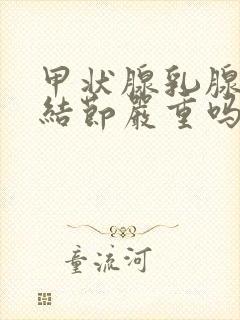 甲状腺乳腺
結節嚴重吗
童流河